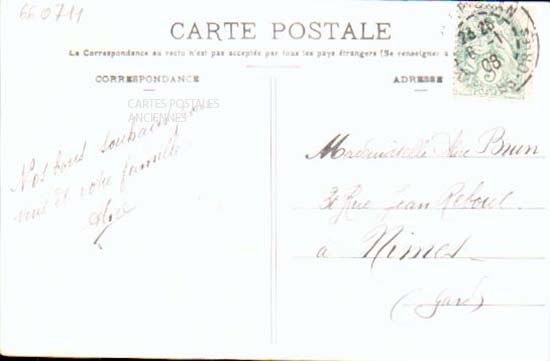 660711
CARTE POSTALE
La Correspondance au recto n'est pas acceptée par tous les pays étrangers (Se renseigner à
CORRESPONDANCE
ADRESSE
CARTES POSTALES
ANCIENNES
Nos bons souhaits
et votre famille
Mademoiselle Brun
30 Rue Jean Reboul.
a Nimes.
(Gard)